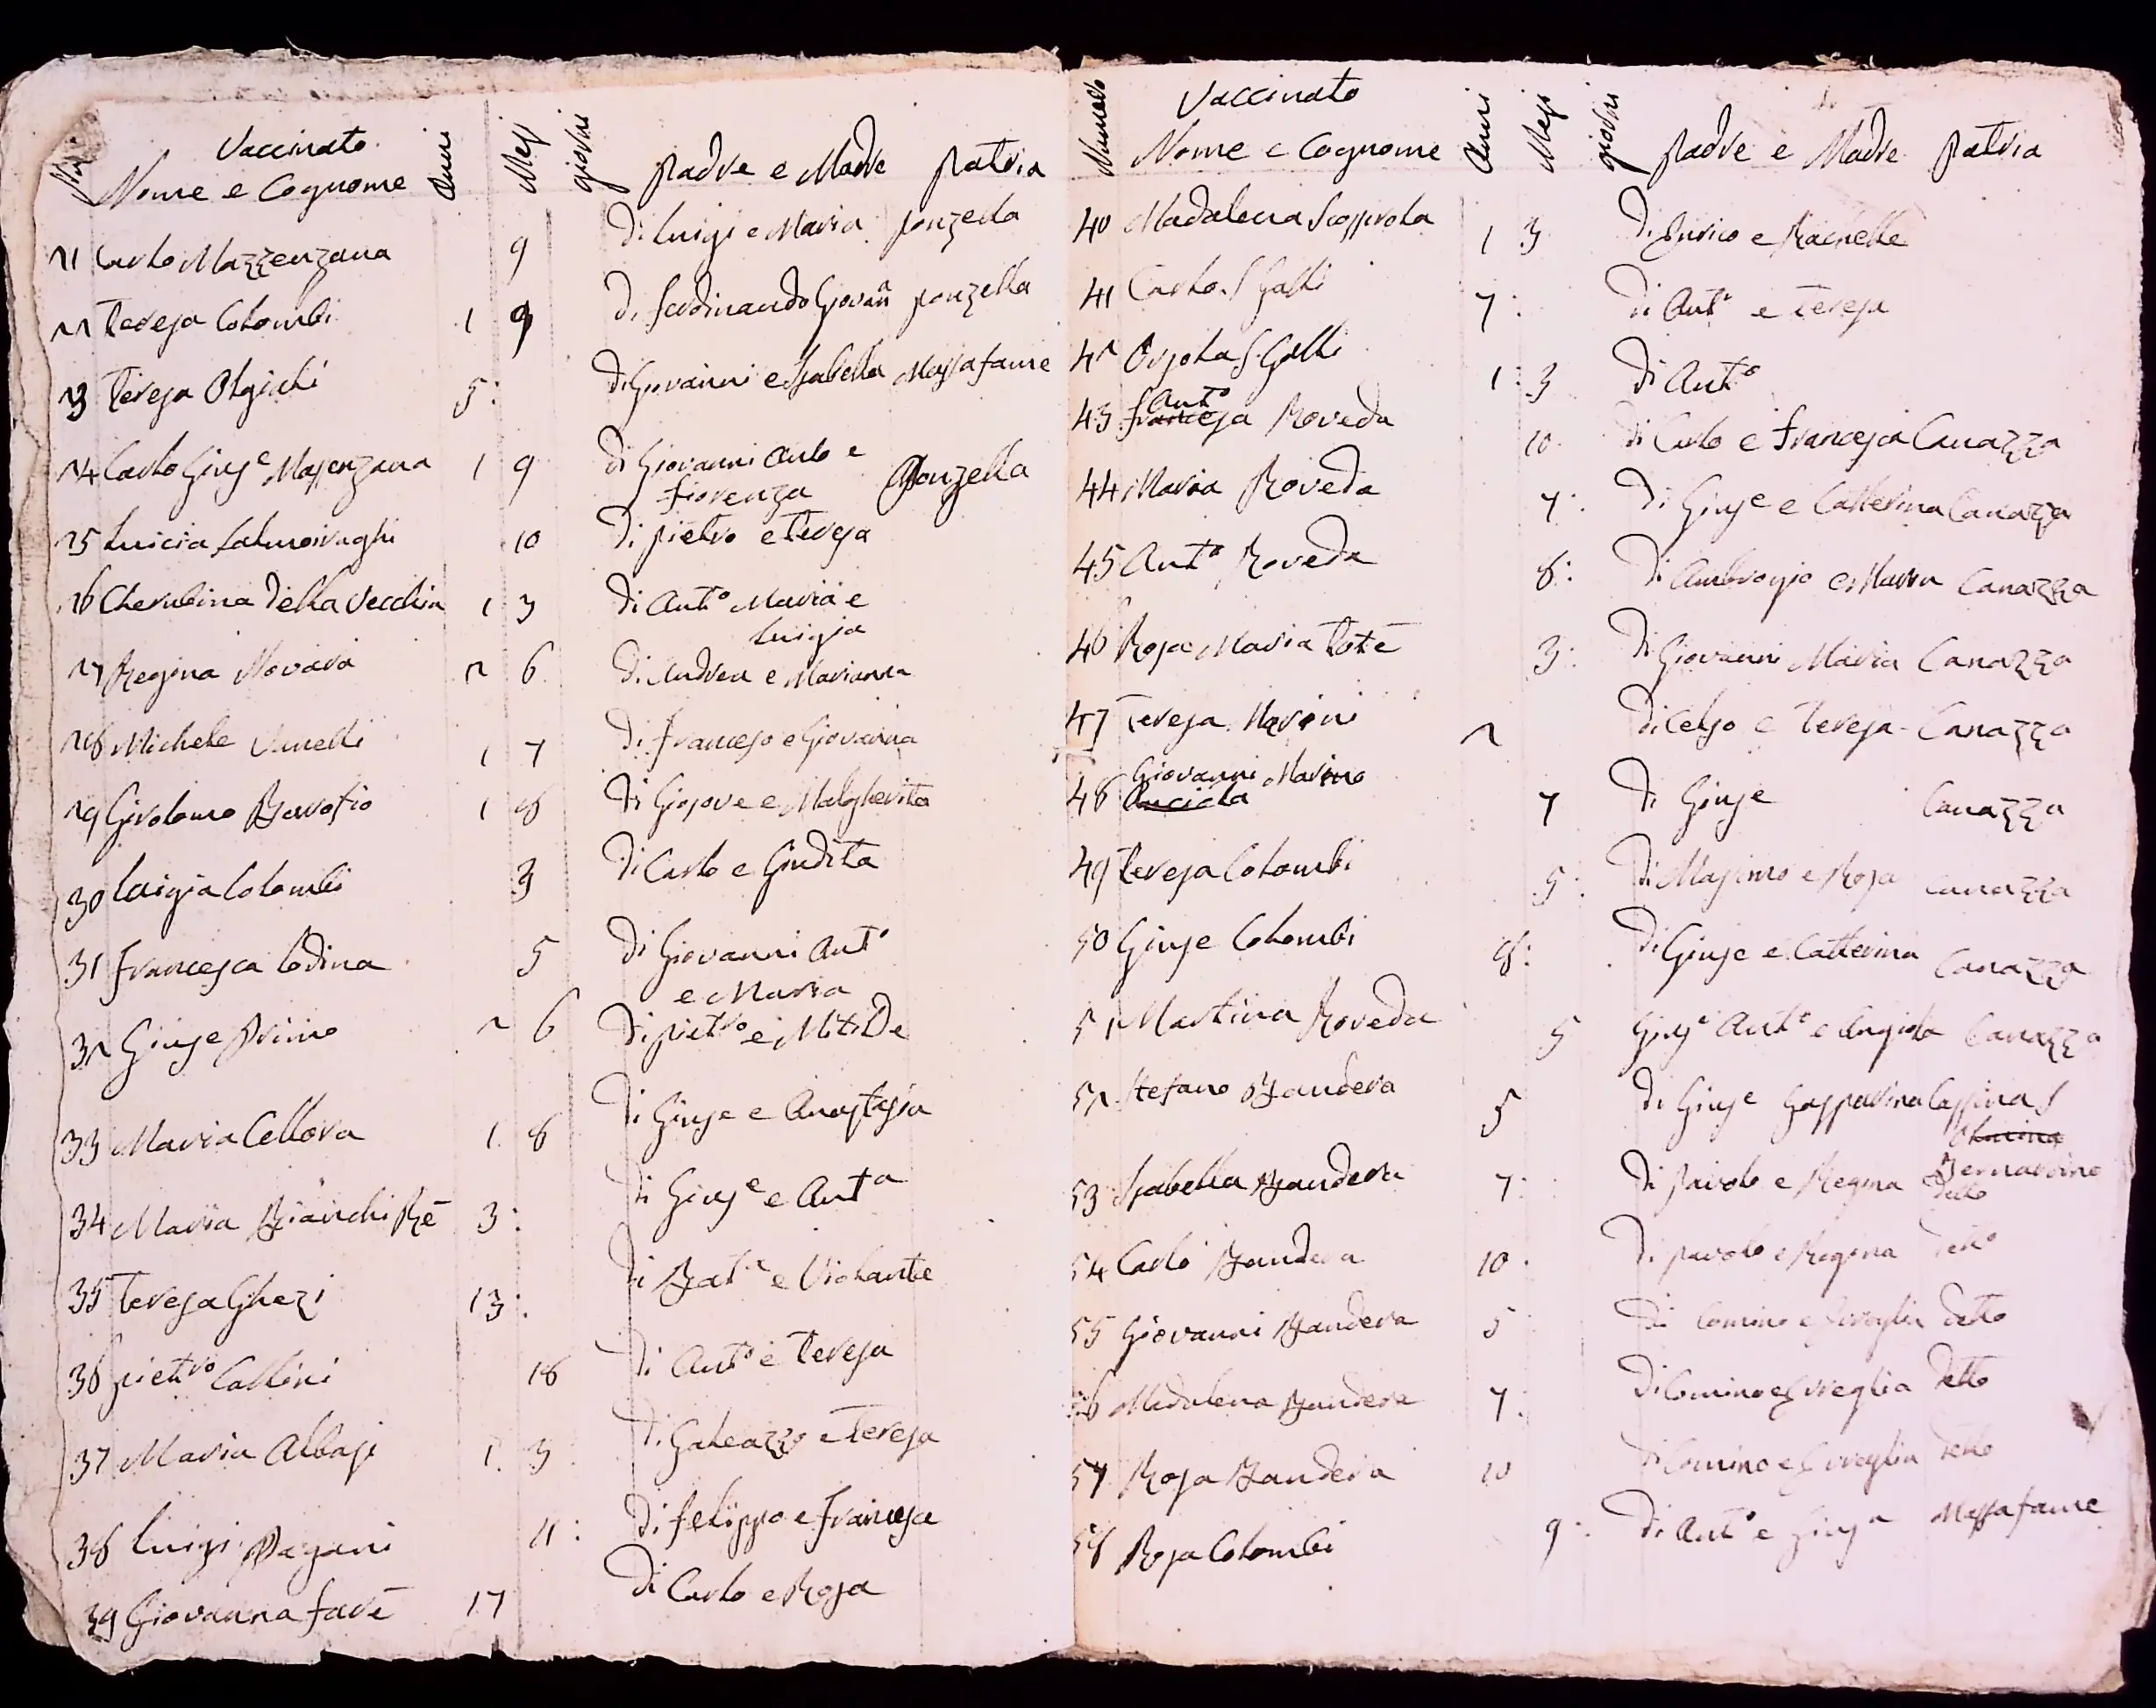 Vaccinato
Nome e Cognome Anni Mesi giorni padre e Madre patria
21 Carlo Mazzenzana 9 di Luigi e Maria ponzella
22 Teresa Colombi 1 9 di ferdinando Giovan̄ ponzella
23 Teresa Olgiahi 5: di Giovanni e Isabella Massafame
24 Carlo Giuse Massenzana 1 9 di Giovanni Carlo e
fiorenza ponzella
25 Luicia Lalmoiraghi 10 di pietro e Teresa
26 Cherubina Della Vecchia 1 3 di Anto Maria e
Luigia
27 Regina Novara 2 6 di Andrea e Marianna
28 Michele Vanelli 1 7 di franceso e Giovanna
29 Girolomo Borrosio 1 8 di Giosove e Malgherita
30 Luigia Colombi 3 di Carlo e Giudita
31 Francesca Codina 5 di Giovanni Anto
e Maria
32 Giuse Primo 2 6 di pietro e Mitilde
33 Maria Cellora 1 8 di Giuse e Anastasia
34 Maria Bianchi Rè 3: di Giuse e Anta
35 Teresa Ghezi 13: di Bata e Violante
36 pietro Callini 18 di Anto e Teresa
37 Maria Albasi 1 3 di Galeazzo e Teresa
38 Luigi Pagani 11: di felippo e francesa
39 Giovanna farè 17 di Carlo e Rosa
Vaccinato
Numero Nome e Cognome Anni Mesi giorni padre e Madre patria
40 Madalena Scossirola 1 3 di Enrico e Rachelle
41 Carlo S Galli 7: di Anto e Teresa
42 Orsola S. Galli 1: 3 di Anto
Anto
43 francesa Roveda 10 di Carlo e francesca Canazza
44 Maria Roveda 7: di Giuse e Catterina Canazza
45 Anto Roveda 8: di Ambrogio e Maria Canazza
46 Rosa Maria Totè 3: di Giovanni Maria Canazza
47 Teresa Marini 2 di Celso e Teresa Canazza
Giovanni Marino
48 7 di Giuse Canazza
49 Teresa Colombi 5: di Masimo e Rosa Canazza
50 Giuse Colombi 8: di Giuse e Catterina Canazza
51 Martina Roveda 5 Giuse Anto e Angiola Canazza
52 Stefano Bandera 5 di Giuse Gasparina Cassina S
Bernardino
53 Isabella Bandera 7: di paivolo e Regina detto
54 Carlo Bandera 10. di pavolo e Regina detto
55 Giovanni Bandera 5 di Comino e detto
56 Madalena Bandera 7: di Comino e detto
57 Rosa Bandera 10 di Comino e detto
58 Rosa Colombi 9: di Anto e Giusa Massafame